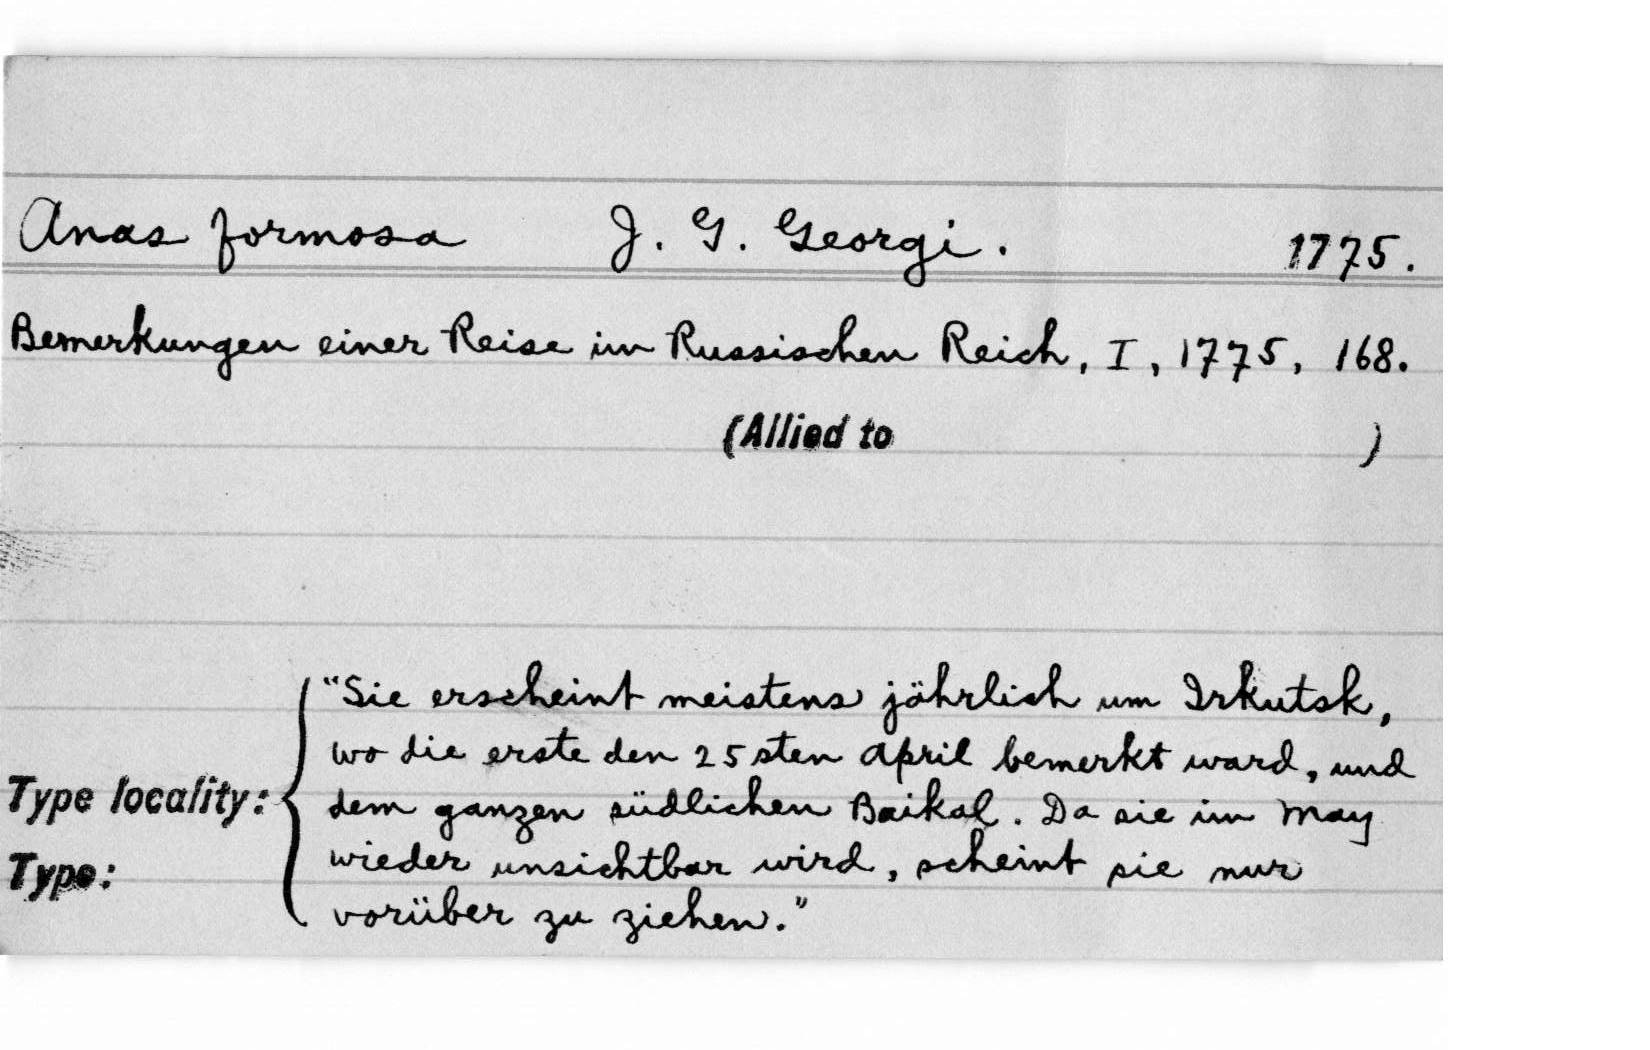 Anas formosa J. G. Georgi. 1775.
Bemerkungen einer Reise im Russischen Reich, I, 1775, 168.
(Allied to )
"Sie erscheint meistens jährlich um Irkutsk,
wo die erste den 25sten April bemerkt ward, und
Type locality: dem ganzen südlichen Baikal. Da sie im May
Type: wieder unsichtbar wird, scheint sie nur
vorüber zu ziehen."